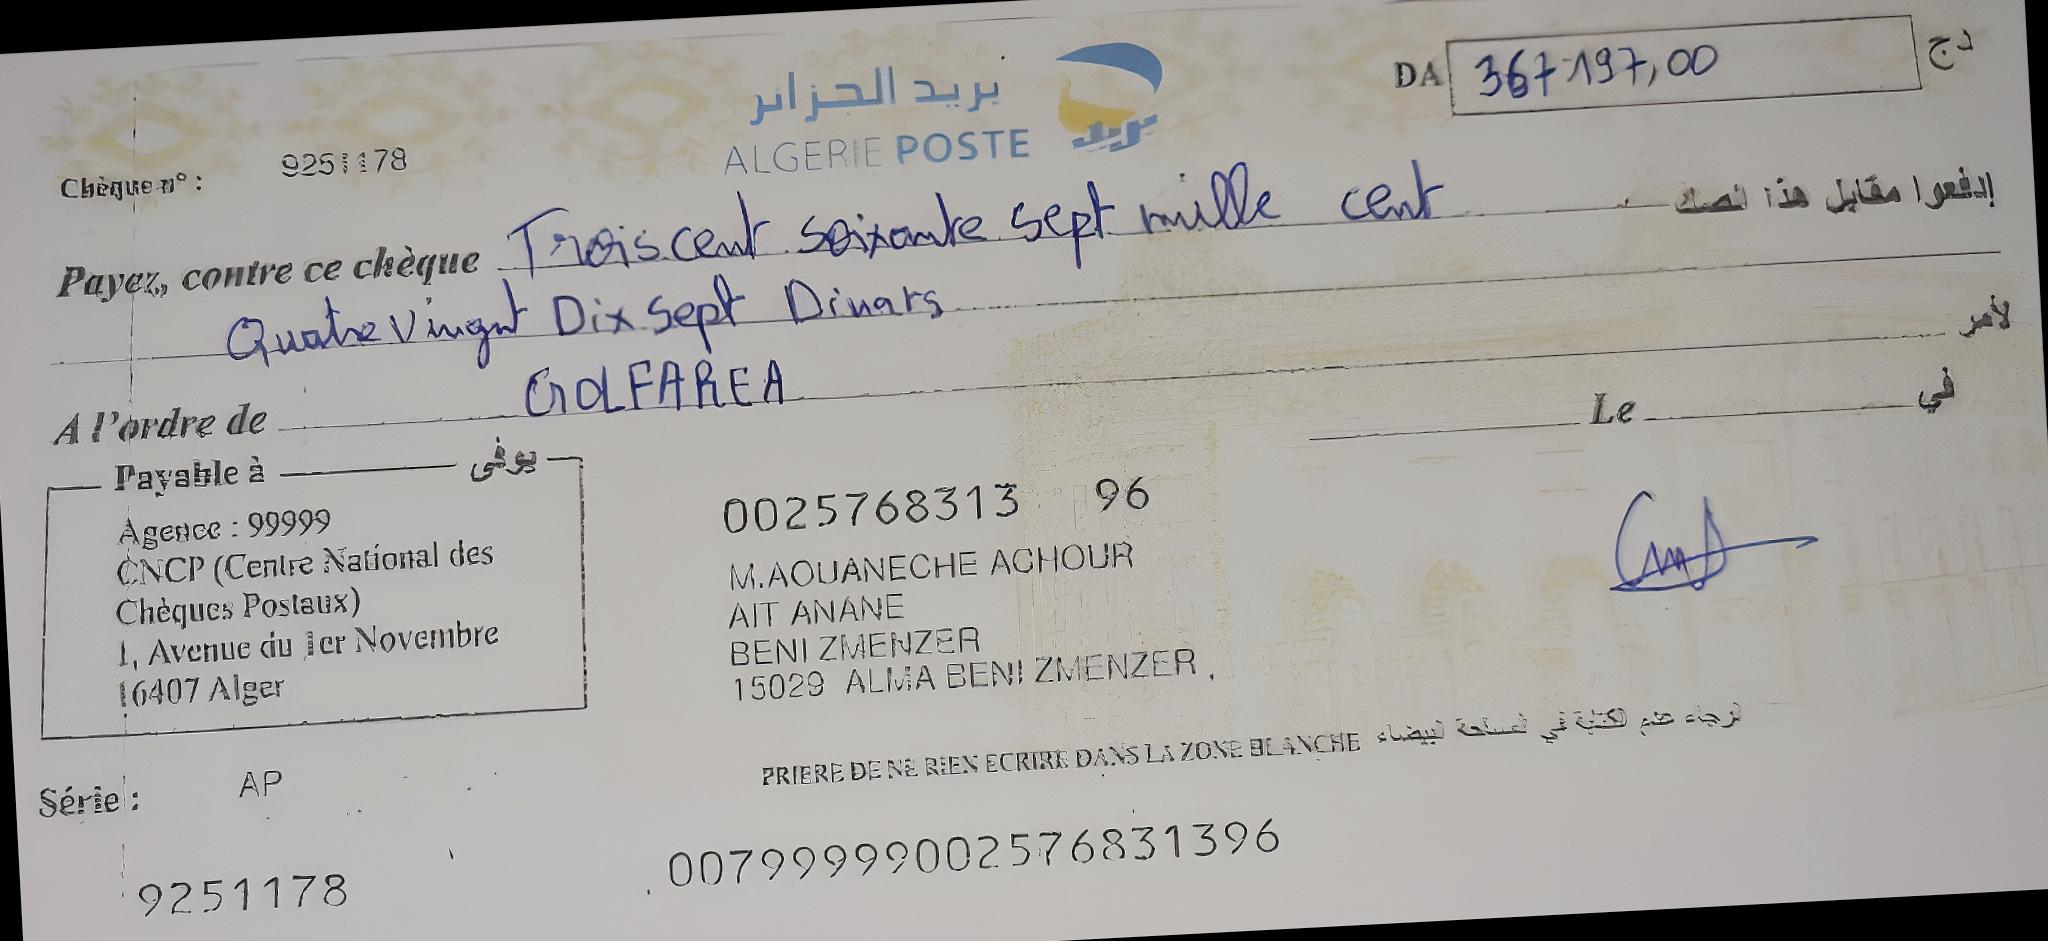 بريد الجزائر
ALGERIE POSTE
بريد
DA 367197,00 دج
Chèque n° : 9251178
Payez, contre ce chèque Trois cent soixante sept mille cent إدفعوا مقابل هذا الصك
Quatre vingt Dix sept Dinars
A l'ordre de GOLFAREA لأمر
Le في
Payable à يوفى
Agence : 99999
CNCP (Centre National des
Chèques Postaux)
1, Avenue du 1er Novembre
16407 Alger
0025768313 96
M.AOUANECHE ACHOUR
AIT ANANE
BENI ZMENZER
15029 ALMA BENI ZMENZER .
PRIERE DE NE RIEN ECRIRE DANS LA ZONE BLANCHE الرجاء عدم الكتابة في المساحة البيضاء
Série : AP
9251178 00799999002576831396